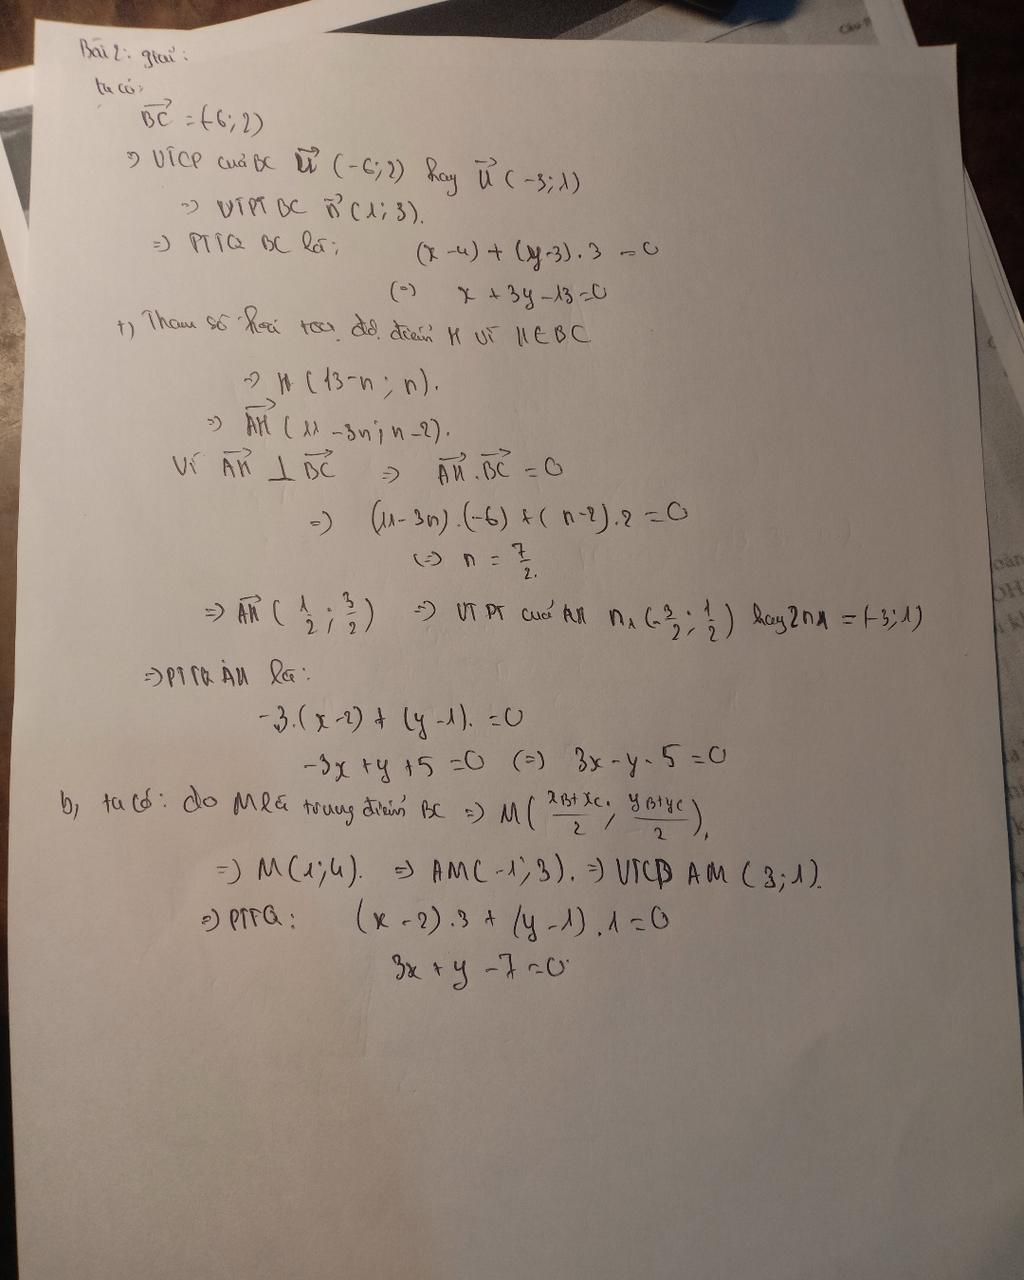 Bài 2: giải:
ta có:
BC→ = (-6; 2)
=> VTCP của BC u→ (-6; 2) hay u→ (-3; 1)
=> VTPT BC n→ (1; 3).
=> PTTQ BC là: (x - 4) + (y - 3). 3 = 0
(=) x + 3y - 13 = 0
+) Tham số hoá toạ độ điểm H vì H ∈ BC
=> H (13 - n; n).
=> AH→ (11 - 3n; n - 2).
Vì AH→ ⊥ BC→ => AH→ . BC→ = 0
=> (11 - 3n). (-6) + (n - 2). 2 = 0
(=) n = 7/2.
=> AH→ (1/2; 3/2) => VTPT của AH n1 (-3/2; 1/2) hay 2n1 = (-3; 1)
=> PTTQ AH là:
-3. (x - 2) + (y - 1). = 0
-3x + y + 5 = 0 (=) 3x - y - 5 = 0
b, ta có: do M là trung điểm BC => M ((xB + xC)/2; (yB + yC)/2),
=> M (1; 4). => AM (-1; 3). => VTCP AM (3; 1).
=> PTTQ: (x - 2). 3 + (y - 1). 1 = 0
3x + y - 7 = 0
Câu